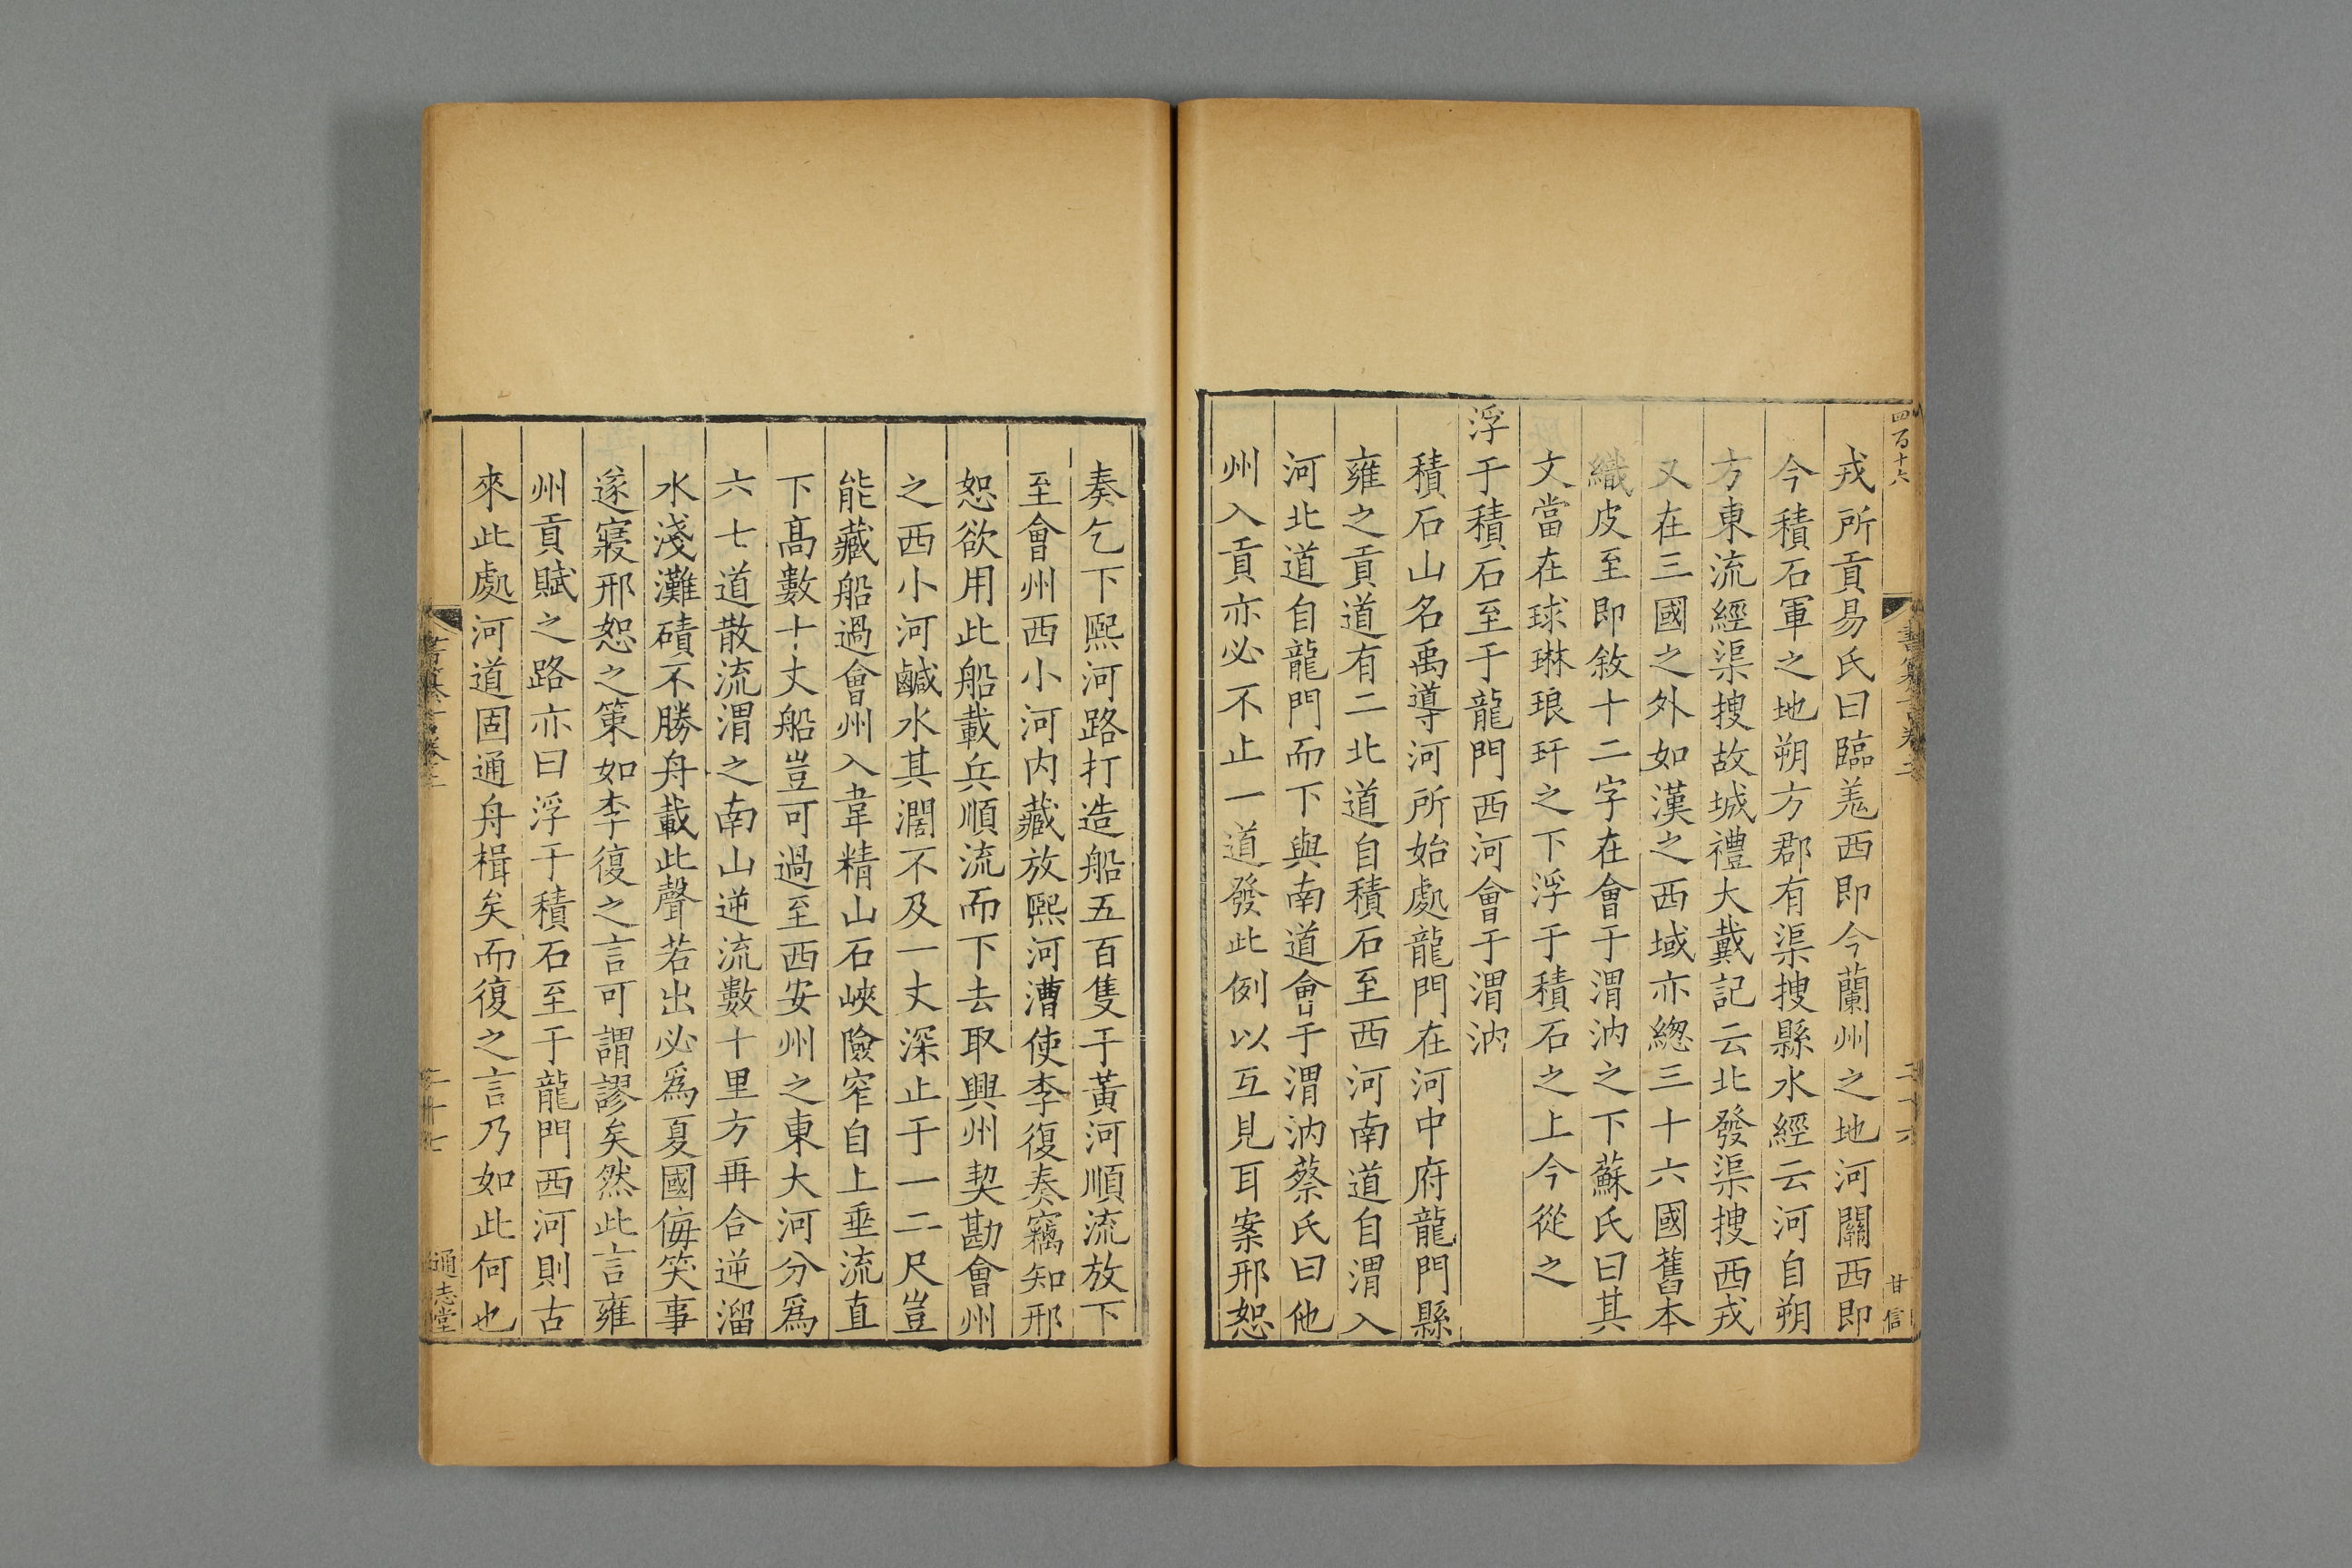 四百十六
書纂言卷二
二十六
甘信
戎所貢易氏曰臨羗西即今蘭州之地河關西即
今積石軍之地朔方郡有渠搜縣水經云河自朔
方東流經渠搜故城禮大戴記云北發渠搜西戎
又在三國之外如漢之西域亦緫三十六國舊本
織皮至即敘十二字在會于渭汭之下蘇氏曰其
文當在球琳琅玕之下浮于積石之上今從之
浮于積石至于龍門西河會于渭汭
積石山名禹導河所始處龍門在河中府龍門縣
雍之貢道有二北道自積石至西河南道自渭入
河北道自龍門而下與南道會于渭汭蔡氏曰他
州入貢亦必不止一道發此例以互見耳案邢恕
奏乞下熙河路打造船五百隻于黃河順流放下
至會州西小河内藏放熙河漕使李復奏竊知邢
恕欲用此船載兵順流而下去取興州契勘會州
之西小河鹹水其濶不及一丈深止于一二尺豈
能藏船過會州入韋精山石峽險窄自上垂流直
下高數十丈船豈可過至西安州之東大河分爲
六七道散流渭之南山逆流數十里方再合逆溜
水淺灘磧不勝舟載此聲若出必爲夏國侮笑事
遂寢邢恕之策如李復之言可謂謬矣然此言雍
州貢賦之路亦曰浮于積石至于龍門西河則古
來此處河道固通舟楫矣而復之言乃如此何也
書纂言卷二
二十七
通志堂